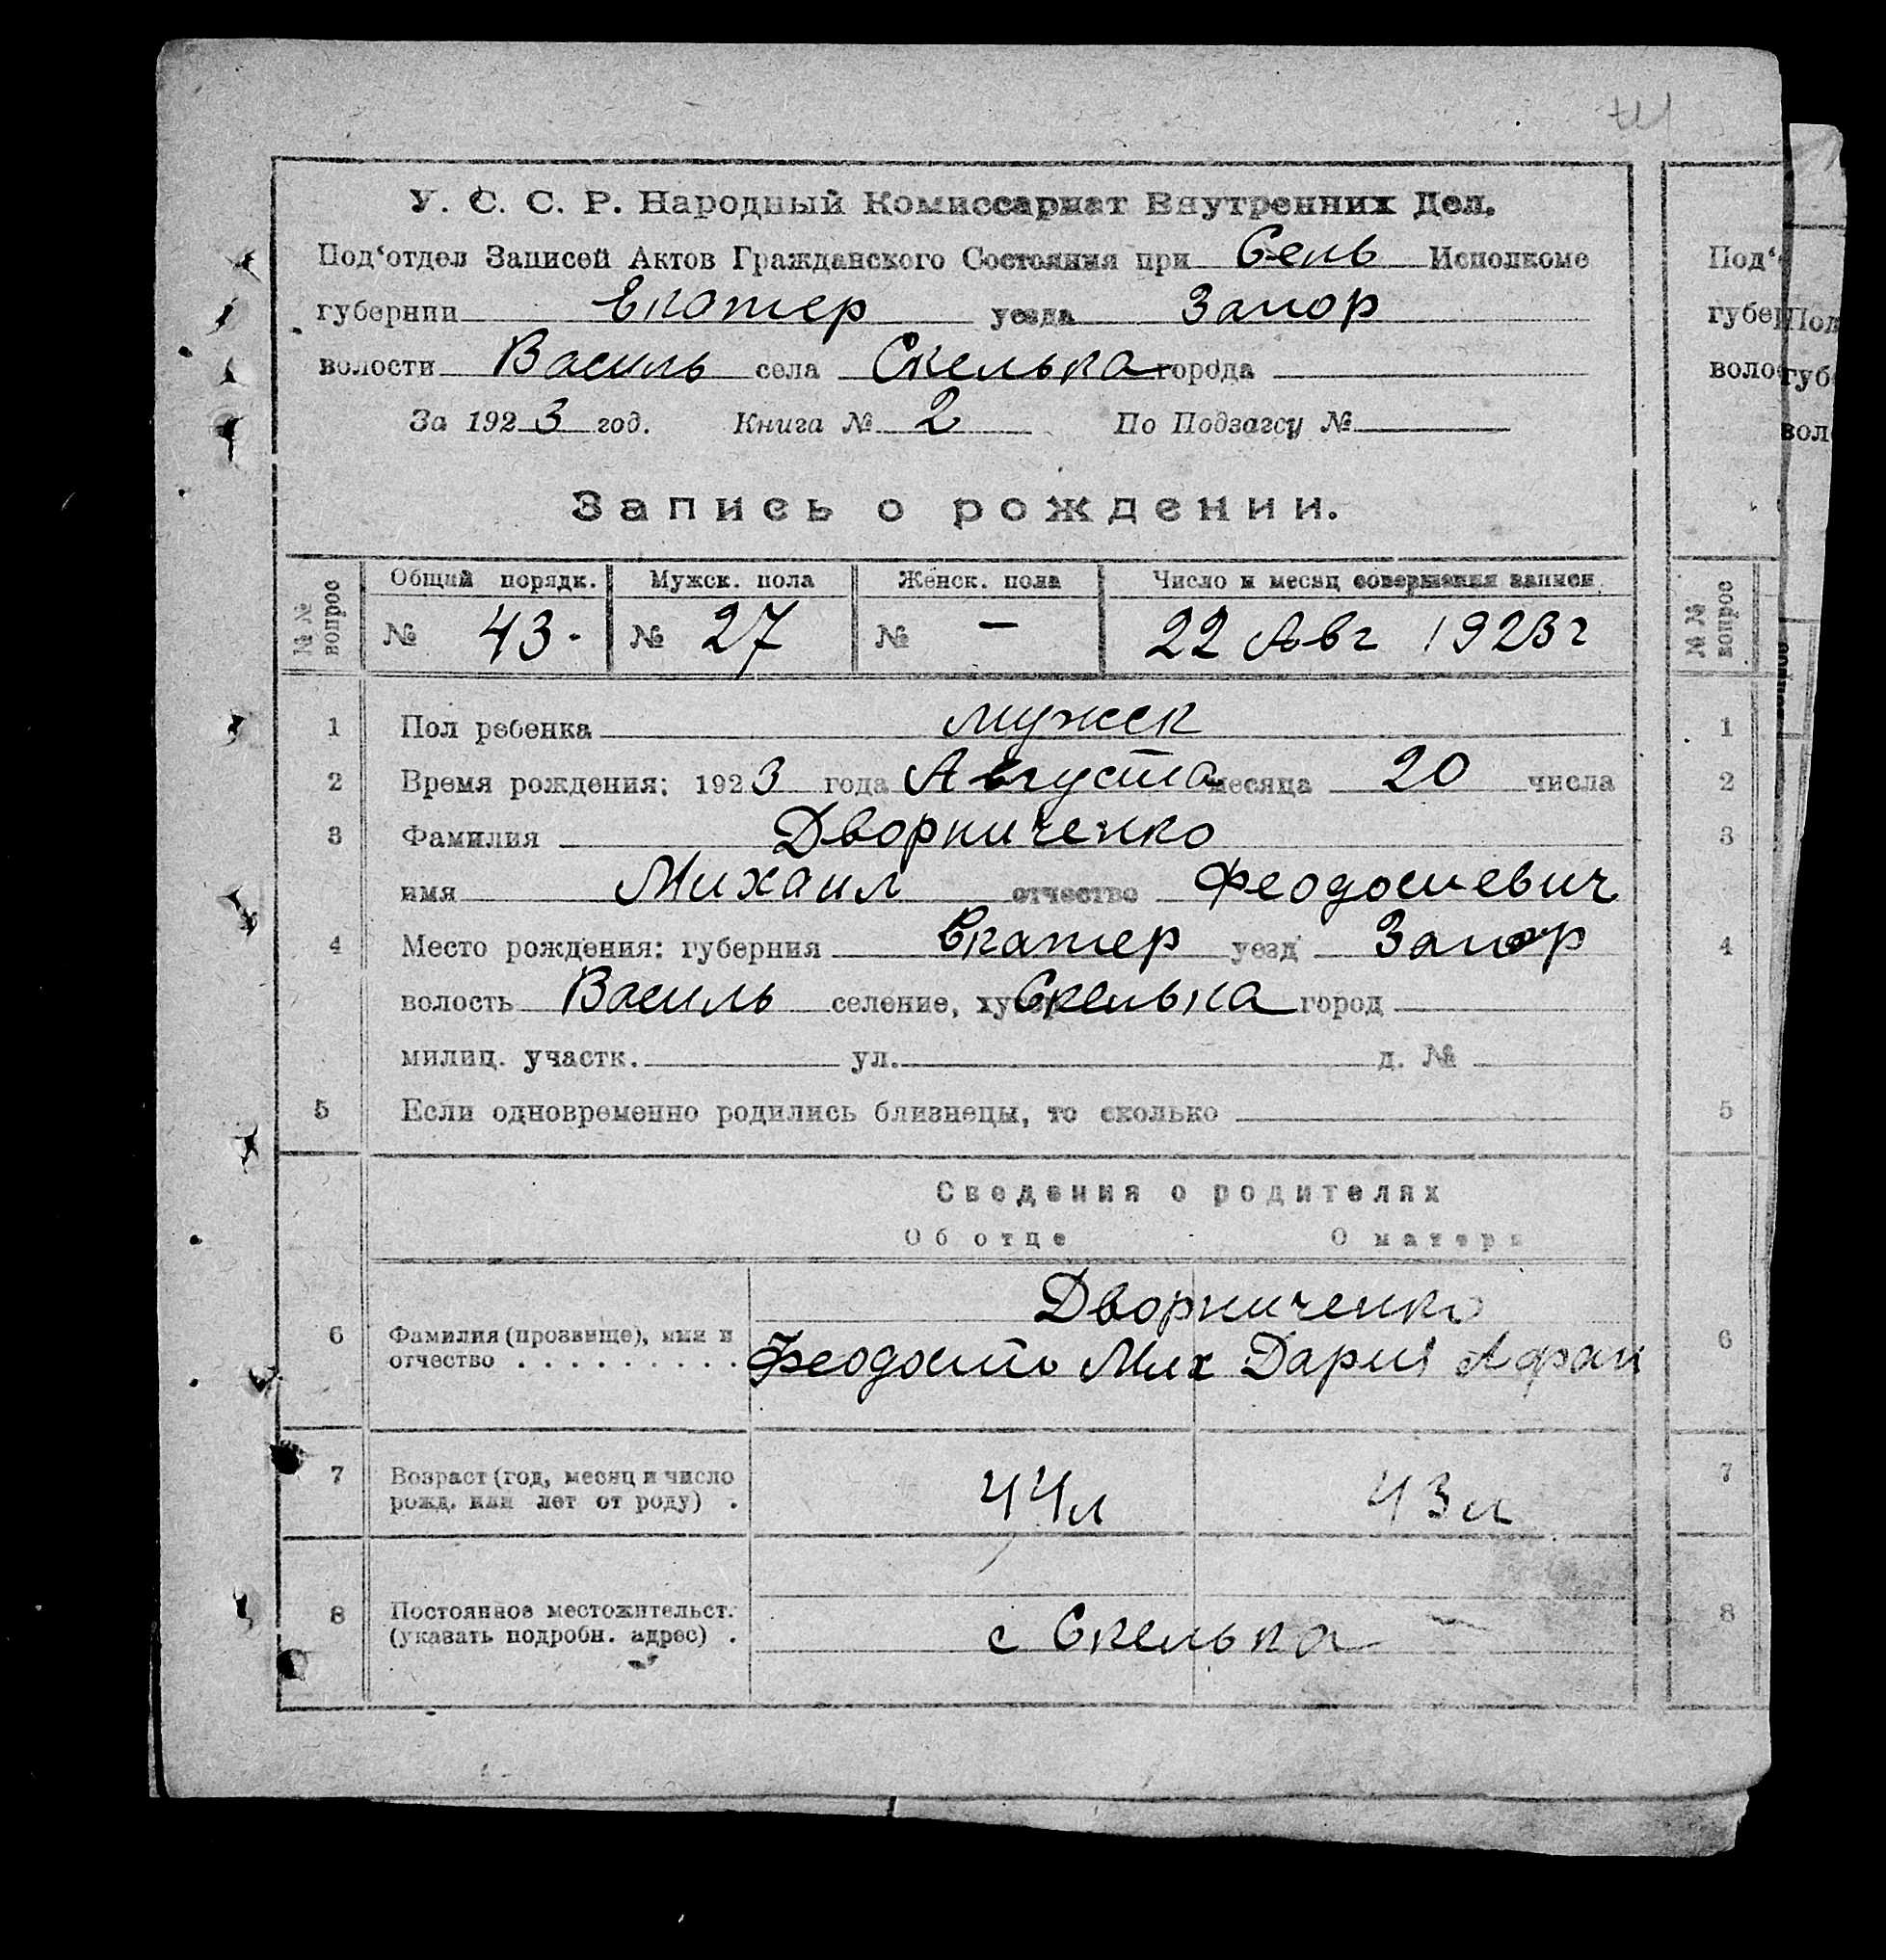 У. С. С. Р. Народный Комиссариат Внутренних Дел.
Под‘отдел Записей Актов Гражданского Состояния при Сель Исполкоме
губернии Екатер уезда Запор
волости Василь села Скелька города
За 1923 год. Книга № 2 По Подзагсу №
Запись о рождении.
№ № вопрос
Общий порядк. Мужск. пола Женск. пола Число и месяц совершения записи
№ 43. № 27 № — 22 Авг 1923 г
1 Пол ребенка мужск
2 Время рождения: 1923 года Августа месяца 20 числа
3 Фамилия Дворниченко
имя Михаил отчество Феодосиевич
4 Место рождения: губерния Екатер уезд Запор
волость Василь селение, хутор Скелька город
милиц. участк. ул. д. №
5 Если одновременно родились близнецы, то сколько
Сведения о родителях
Об отце О матери
Дворниченко
6 Фамилия (прозвище), имя и
отчество . . . . . . . . . Феодосий Мих Дария Афан
7 Возраст (год, месяц и число
рожд. или лет от роду) . 44 л 43 л
8 Постоянное местожительст.
(указать подробн. адрес) . с Скелька
Под‘
губер
воло
№ № вопрос
1
2
3
4
5
6
7
8
Под
губ
вол